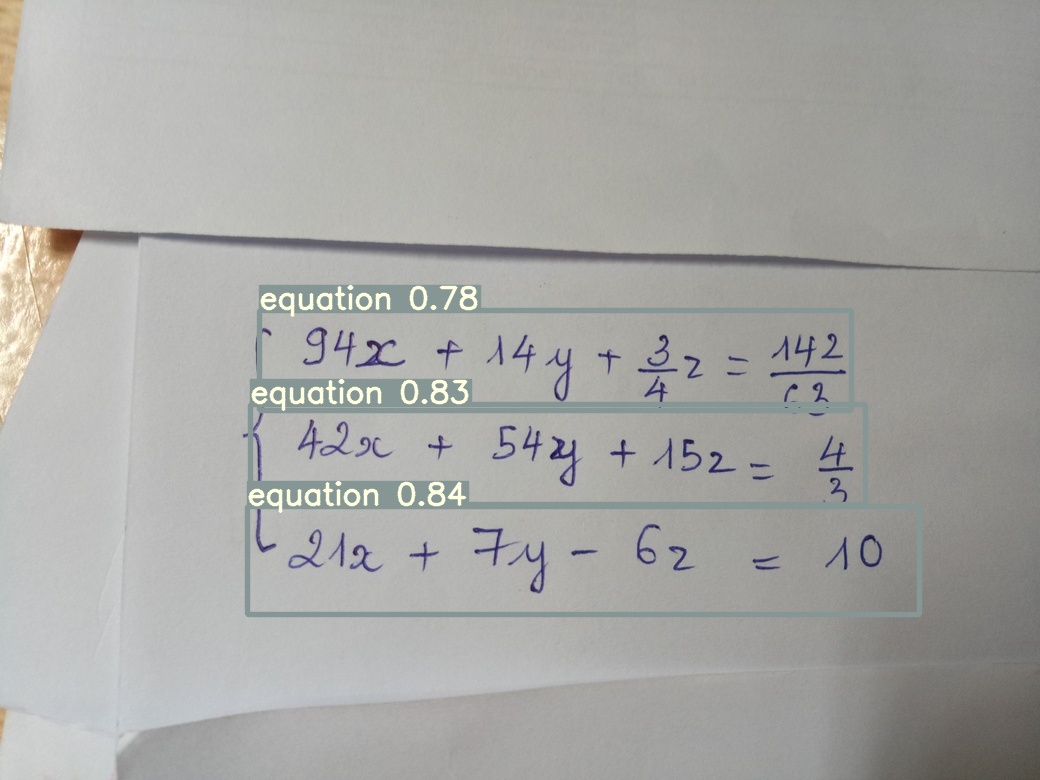 equation 0.78
94x + 14y + 3/4 z = 142/63
equation 0.83
42x + 54y + 15z = 4/3
equation 0.84
21x + 7y - 6z = 10